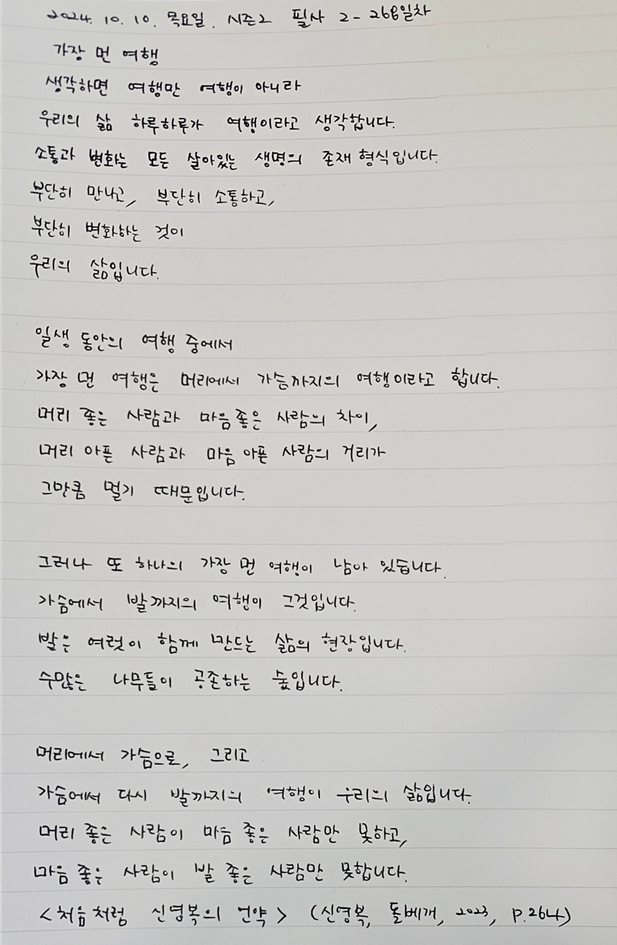 2024. 10. 10. 목요일. 시즌2 필사 2-268일차
가장 먼 여행
생각하면 여행만 여행이 아니라
우리의 삶 하루하루가 여행이라고 생각합니다.
소통과 변화는 모든 살아있는 생명의 존재 형식입니다.
부단히 만나고, 부단히 소통하고,
부단히 변화하는 것이
우리의 삶입니다.
일생 동안의 여행 중에서
가장 먼 여행은 머리에서 가슴까지의 여행이라고 합니다.
머리 좋은 사람과 마음좋은 사람의 차이,
머리 아픈 사람과 마음 아픈 사람의 거리가
그만큼 멀기 때문입니다.
그러나 또 하나의 가장 먼 여행이 남아 있습니다.
가슴에서 발까지의 여행이 그것입니다.
발은 여럿이 함께 만드는 삶의 현장입니다.
수많은 나무들이 공존하는 숲입니다.
머리에서 가슴으로, 그리고
가슴에서 다시 발까지의 여행이 우리의 삶입니다.
머리 좋은 사람이 마음 좋은 사람만 못하고,
마음 좋은 사람이 발 좋은 사람만 못합니다.
<처음처럼 신영복의 언약> (신영복, 돌베개, 2023, P.264)